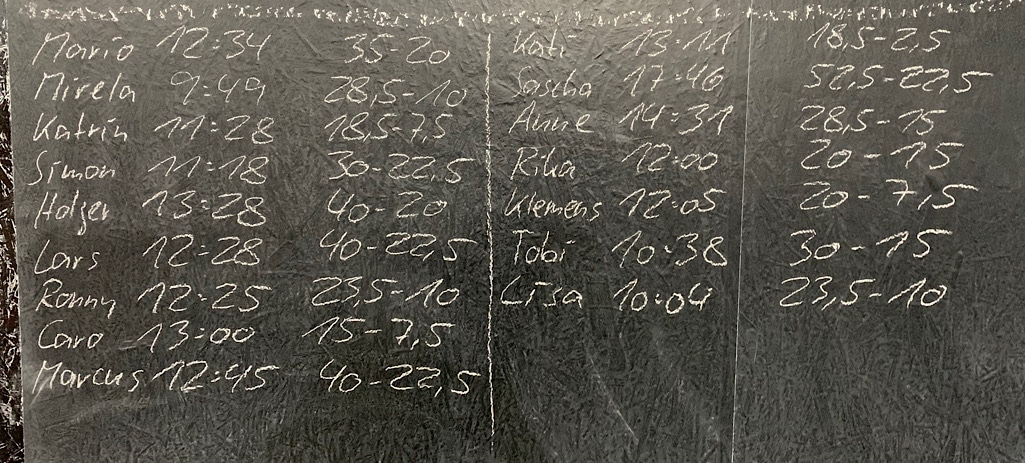 Mario 12:34 35-20
Mirela 9:49 28,5-10
Katrin 11:28 18,5-7,5
Simon 11:18 30-22,5
Holger 13:28 40-20
Lars 12:28 40-22,5
Ronny 12:25 23,5-10
Caro 13:00 15-7,5
Marcus 12:45 40-22,5
Kati 13:11 18,5-2,5
Sascha 17:46 52,5-22,5
Anne 14:31 28,5-15
Rika 12:00 20-15
Klemens 12:05 20-7,5
Tobi 10:38 30-15
Lisa 10:04 23,5-10